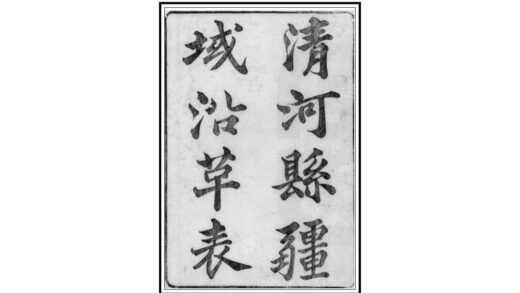 清河縣疆
域沿革表